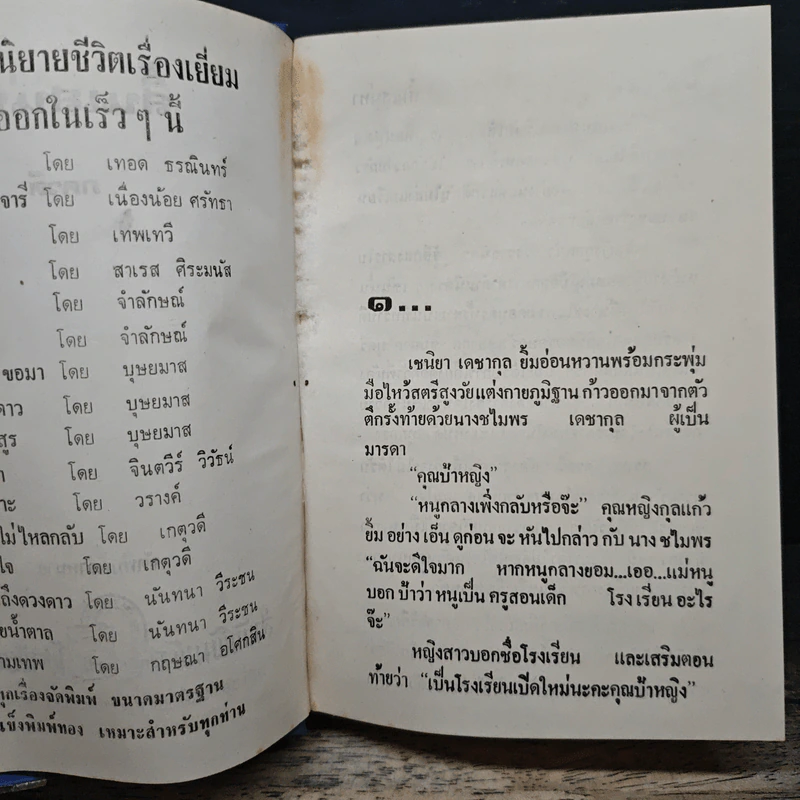 นิยายชีวิตเรื่องเยี่ยม
ออกในเร็ว ๆ นี้
โดย เทอด ธรณินทร์
จารี โดย เนื่องน้อย ศรัทธา
โดย เทพเทวี
โดย สาเรส ศิระมนัส
โดย จำลักษณ์
โดย จำลักษณ์
ขอมา โดย บุษยมาส
ดาว โดย บุษยมาส
สูร โดย บุษยมาส
โดย จินตวีร์ วิวัธน์
าะ โดย วรางค์
ไม่ไหลกลับ โดย เกตุวดี
ใจ โดย เกตุวดี
ถึงดวงดาว โดย นันทนา วีระชน
ยน้ำตาล โดย นันทนา วีระชน
ามเทพ โดย กฤษณา อโศกสิน
ทุกเรื่องจัดพิมพ์ ขนาดมาตรฐาน
แข็งพิมพ์ทอง เหมาะสำหรับทุกท่าน
๑...
เชนิยา เดชากุล ยิ้มอ่อนหวานพร้อมกระพุ่ม
มือไหว้สตรีสูงวัยแต่งกายภูมิฐาน ก้าวออกมาจากตัว
ตึกรั้งท้ายด้วยนางชไมพร เดชากุล ผู้เป็น
มารดา
“คุณป้าหญิง”
“หนูกลางเพิ่งกลับหรือจ๊ะ” คุณหญิงกุลแก้ว
ยิ้ม อย่าง เอ็น ดูก่อน จะ หันไปกล่าว กับ นาง ชไมพร
“ฉันจะดีใจมาก หากหนูกลางยอม...เออ...แม่หนู
บอก ป้าว่า หนูเป็น ครูสอนเด็ก โรง เรียน อะไร
จ๊ะ”
หญิงสาวบอกชื่อโรงเรียน และเสริมตอน
ท้ายว่า “เป็นโรงเรียนเปิดใหม่นะคะคุณป้าหญิง”